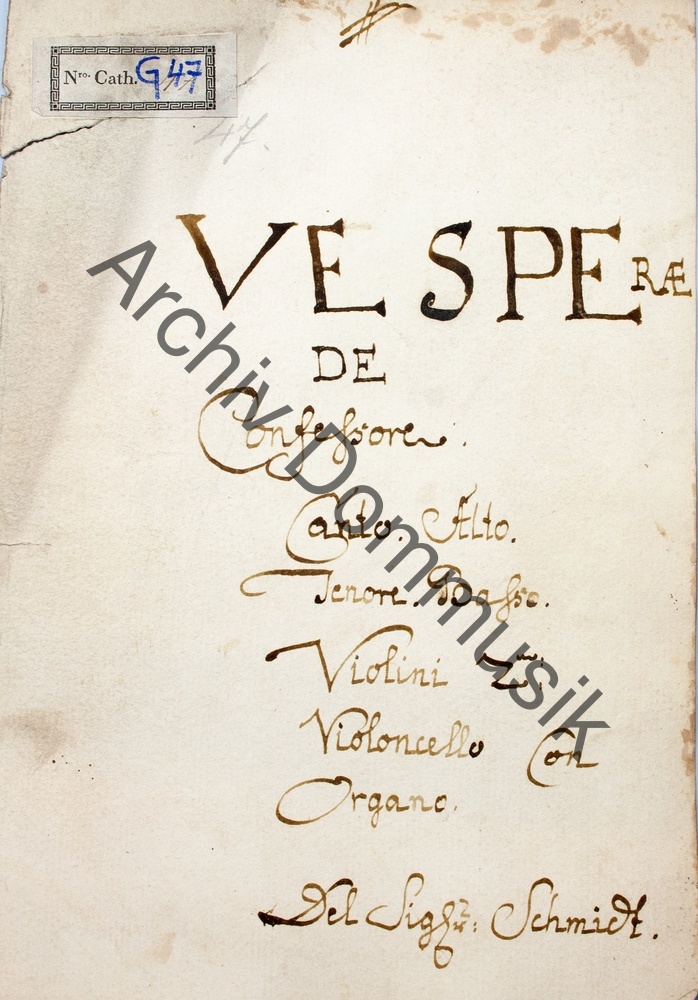 Nro. Cath. G 47
47.
VESPERÆ
DE
Confessore.
Canto. Alto.
Tenore. Basso.
Violini
Violoncello Con
Organo.
Del Sigr: Schmidt.
Archiv Dommusik